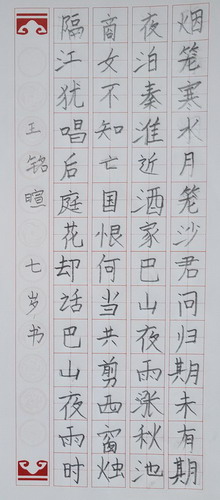 烟笼寒水月笼沙君问归期未有期
夜泊秦淮近酒家巴山夜雨涨秋池
商女不知亡国恨何当共剪西窗烛
隔江犹唱后庭花却话巴山夜雨时
王铭暄 七岁书